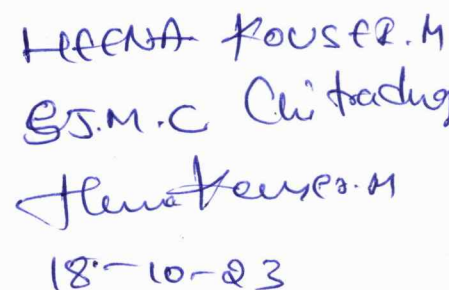 HEENA KOUSER.M
SJ.M.C Chitradurg
Heena Kouser.M
18-10-23